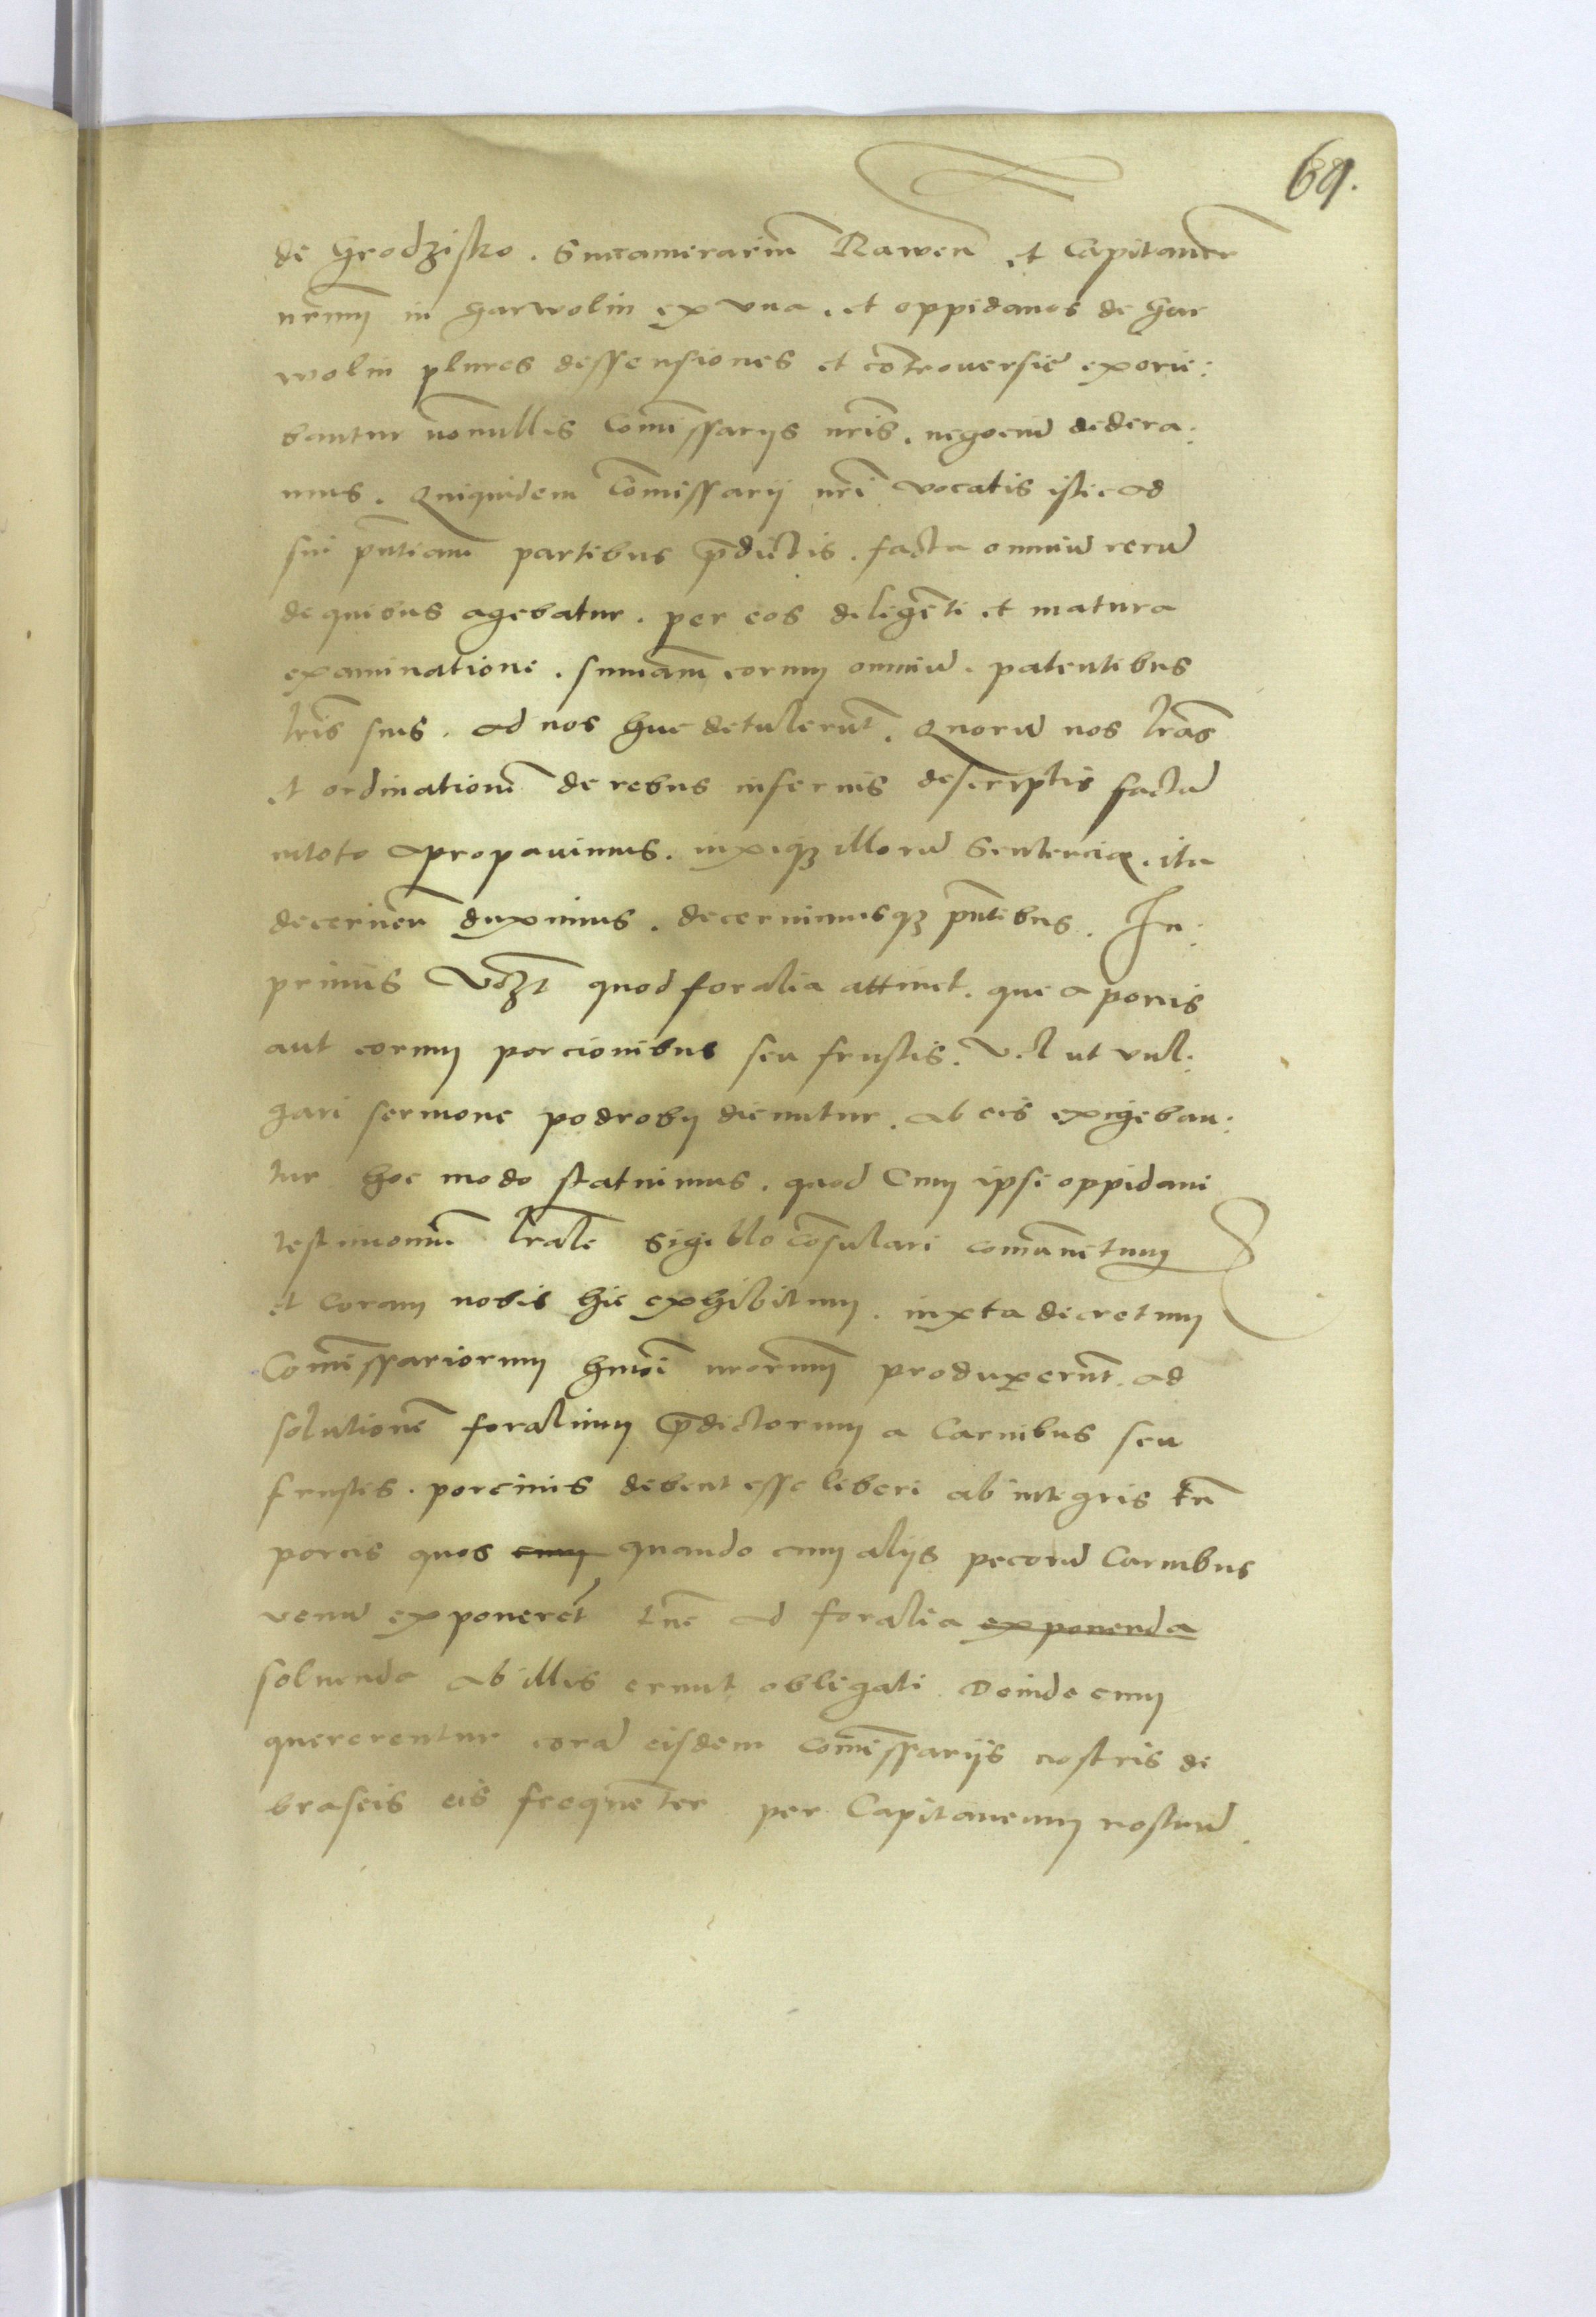 69.
de Grodzisko. Succamerariũ Rawen̄ et Capitaneũ
nr̃um in Garwolin ex vna. et oppidanos de Gar
wolin plures dessensiones et cõtrouersie exorie:
bantur nõnullis Com̃issarijs nr̃is. negociũ dedera:
mus. Quiquidem Com̃issarij nr̃i vocatis istic ad
sui pñtiam partibus p̃dictis. facta omniũ rerũ
de quibus agebatur. per eos diligẽti et matura
examinatione. sum̃am eorum omniũ. patentibus
lr̃is suis. ad nos huc detulerũt. Quorũ nos lr̃as
et ordinationẽ de rebus inferius descriptis factã
in toto approbauimus. iuxtaqȝ illorũ Sentenciã. ita
decernen̄ duximus. decernimusqȝ pñtibus. In:
primis vȝt quod foralia attinet. que a porcis
aut eorum porcionibus seu frustis. vel ut vul:
gari sermone podroby dicuntur. ab eis exigeban:
tur hoc modo statuimus. quod Cum ipsi oppidani
testimoniũ lr̃ale sigillo cõsulari com̃unitum
et coram nobis hic exhibitum. iuxta decretum
Com̃issariorum hmõi nr̃orum produxerũt. ad
solutionẽ foralium p̃dictorum a Carnibus seu
frustis. porcinis debent esse liberi ab integris tñ
porcis quos cum quando cum alijs pecorũ Carnibus
venũ exponerẽt tñc ad foralia exponenda
soluenda ab illis erunt obligati. Deinde cum
quererentur corã eisdem Com̃issarijs nostris de
braseis eis frequẽter per Capitaneum nostrũ.